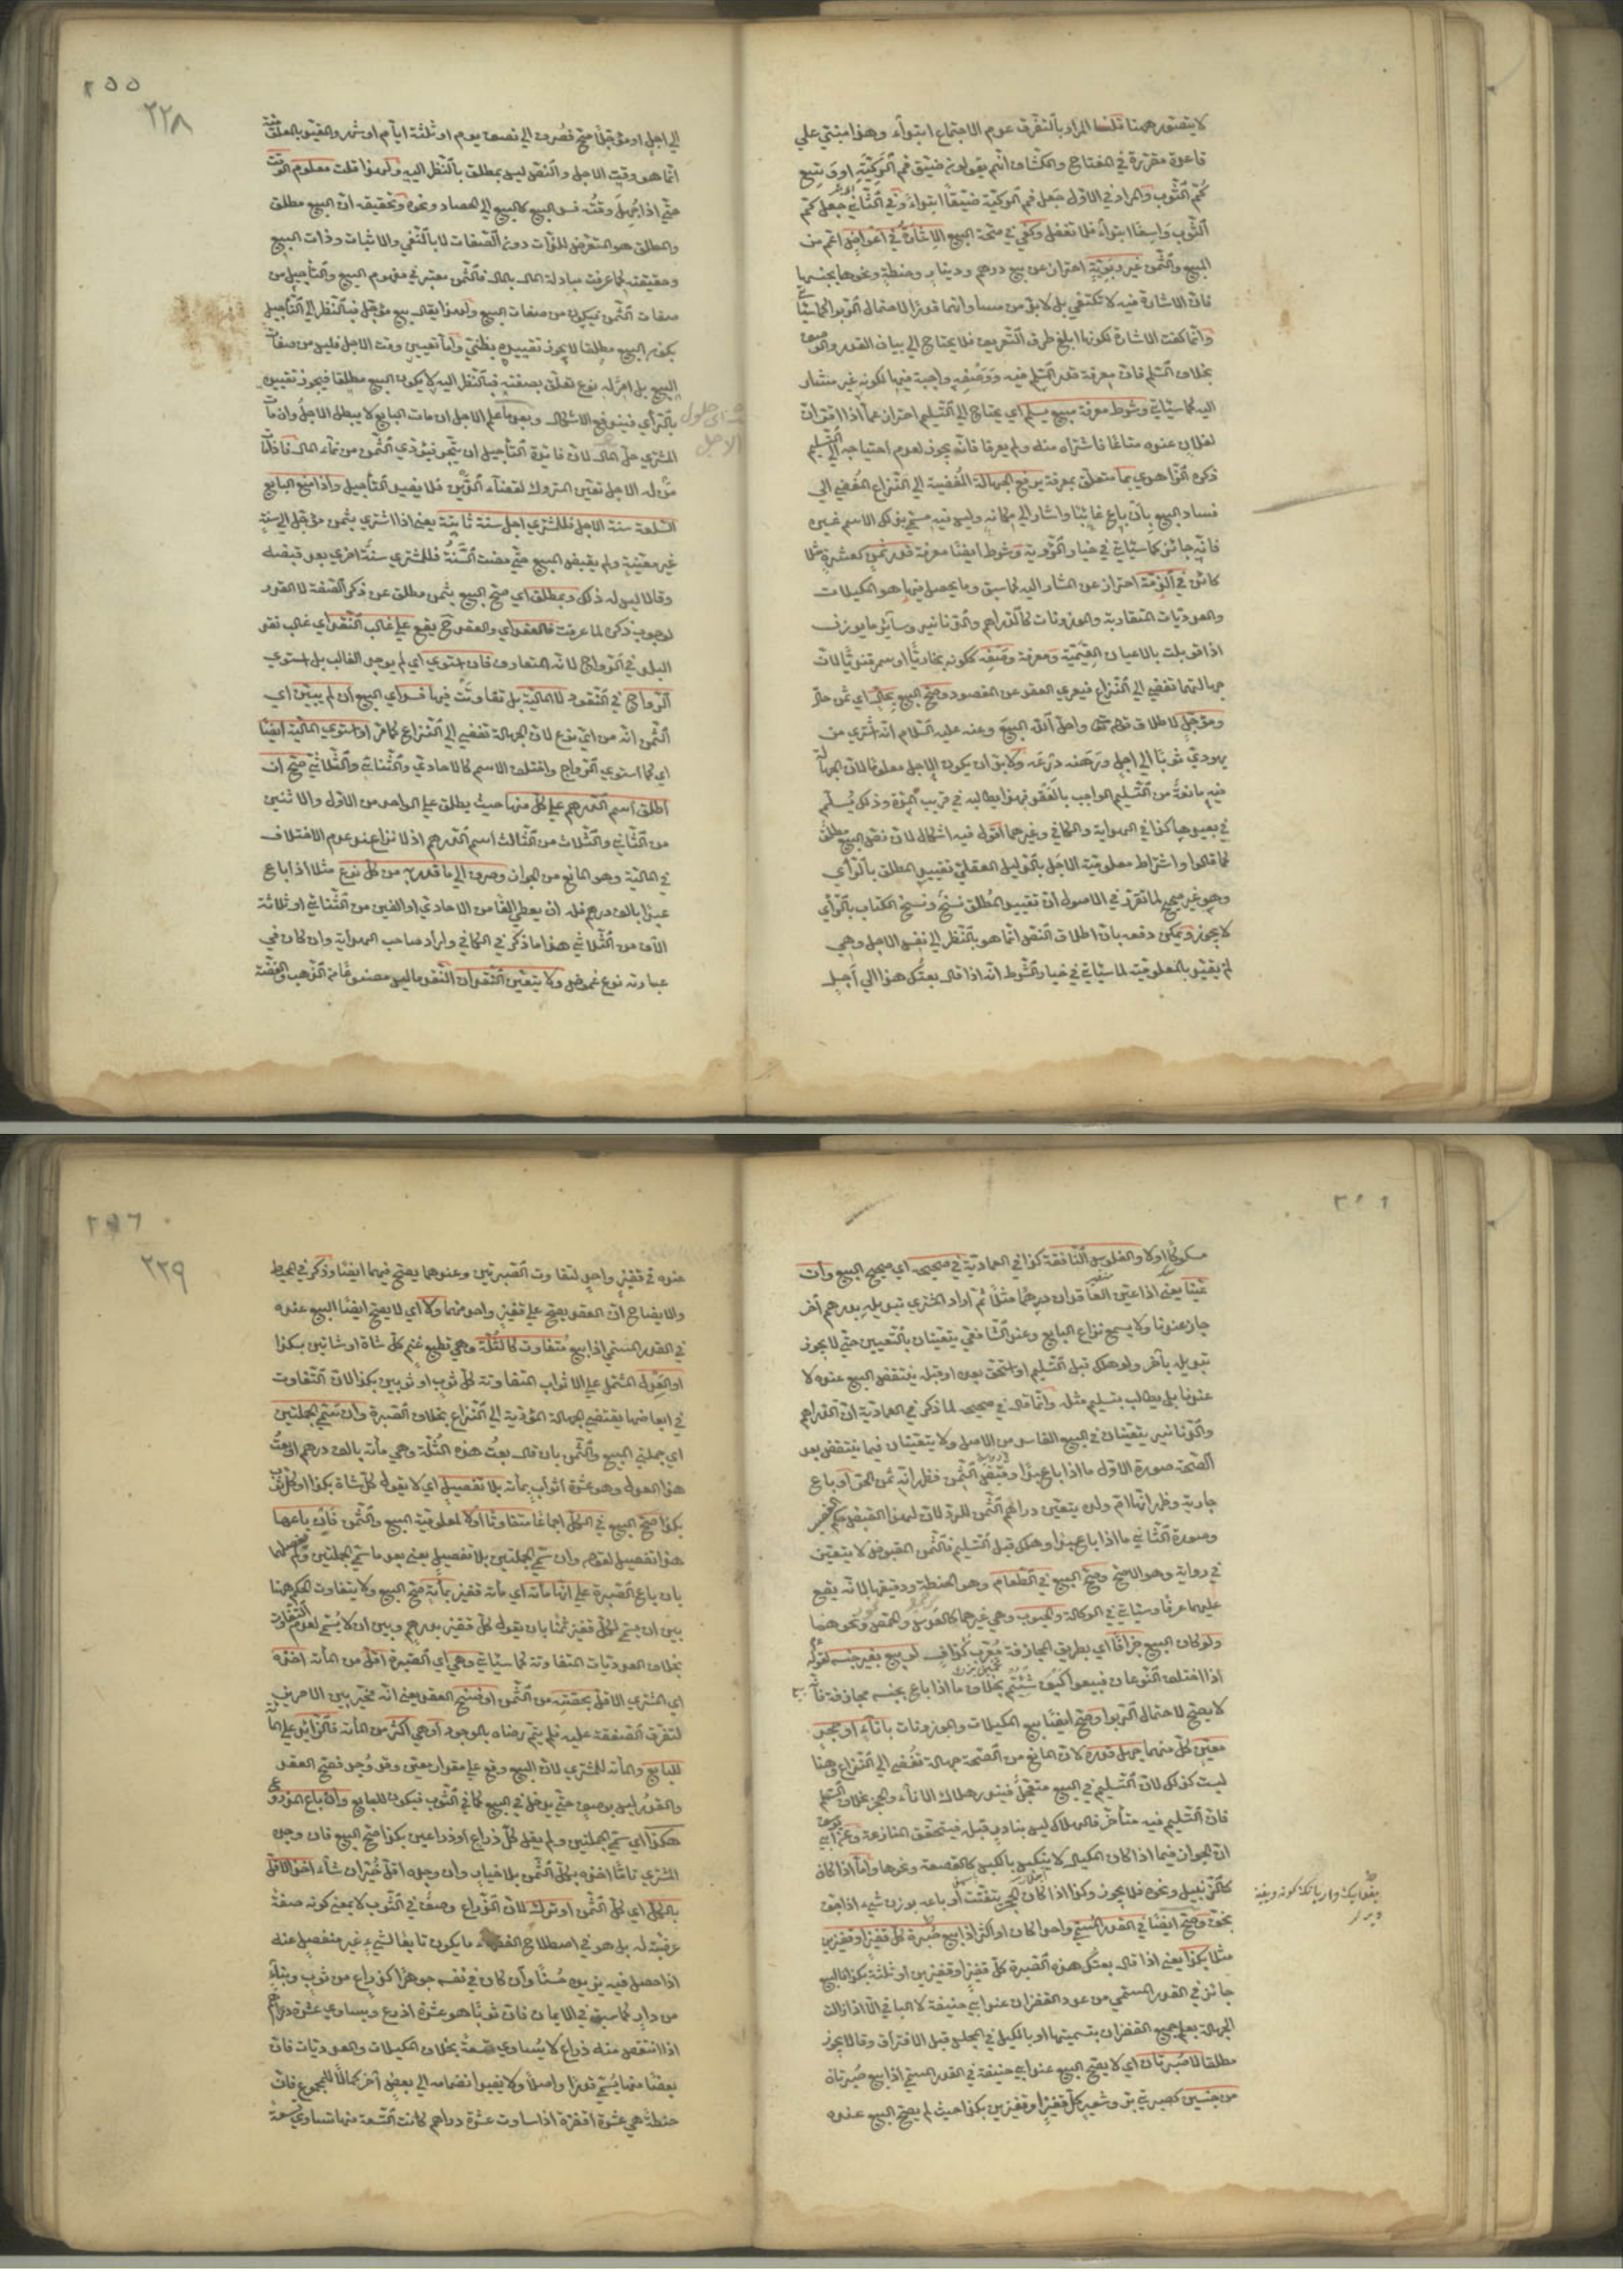 لا يتصور ههنا قلنا المراد بالتفرق عدم الاجتماع ابتداء وهذا مبتني علي
قاعدة مقررة في المفتاح والكشاف انهم يقولون ضيق فم الركية او وسع
كم الثوب والمراد في الاول جعل فم الركية ضيقا ابتداء وفي الثاني جعل كم
الثوب واسعا ابتداء فلا تغفل وكفي في صحة البيع الاشارة في اعواض اعم من
المبيع والثمن غير ربوية احتراز عن بيع درهم ودينار وحنطة ونحوها بجنسها
فان الاشارة فيه لا تكتفي بل لا بد من مساواتهما قدرا لاحتمال الربوا كما سيأتي
وانما كفت الاشارة لكونها ابلغ طرق التعريف فلا يحتاج الي بيان القدر والوصف
بخلاف السلم فان معرفة قدر المسلم فيه ووصفه واجبة فيها لكونه غير مشار
اليه كما سيأتي وشرط معرفة مبيع يسلم اي يحتاج الي التسليم احتراز عما اذا اقر ان
لفلان عنده متاعا فاشتراه منه ولم يعرفا فانه يجوز لعدم احتياجه الي التسليم
ذكره الزاهدي بما متعلق بمعرفة يرفع الجهالة المفضية الي النزاع المفضي الي
فساد البيع بان باع غائبا واشار الي مكانه وليس فيه مسمي بذلك الاسم غيره
فانه جائز كما سيأتي في خيار الرؤية وشرط ايضا معرفة قدر ثمن كعشرة مثلا
كائن في الذمة احتراز عن المشار اليه كما سبق وما يحصل فيها هو المكيلات
والعدديات المتقاربة والموزونات كالدراهم والدنانير وسائر ما يوزن
اذا قوبلت بالاعيان القيمية ومعرفة وصفه ككونه بخاريا او سمرقنديا لان
جهالتهما تفضي الي النزاع فيعري العقد عن المقصود وصح البيع بحال اي ثمن حال
ومؤجل لاطلاق قوله تعالي واحل الله البيع وعنه عليه السلام انه اشتري من
يهودي ثوبا الي اجل ورهنه درعه ولا بد ان يكون الاجل معلوما لان الجهالة
فيه مانعة من التسليم الواجب بالعقد فهذا يطالبه في قريب المدة وذلك يسلم
في بعيدها كذا في الهداية والكافي وغيرهما اقول فيه اشكال لان نص البيع مطلق
كما قالوا واشتراط معلومية الاجل بالدليل العقلي تقييد المطلق بالرأي
وهو غير صحيح لما تقرر في الاصول ان تقييد المطلق نسخ ونسخ الكتاب بالرأي
لا يجوز ويمكن دفعه بان اطلاق النص انما هو بالنظر الي نفس الاجل وهي
لم يقيد بالمعلومية لما سيأتي في خيار الشرط انه اذا قال بعتك هذا الي اجل
٢٥٥
٢٢٨
الي اجل او مؤجلا صح فصرف الي نصف يوم او ثلثة ايام او شهر والمقيد بالمعلومية
انما هو وقت الاجل والنص ليس بمطلق بالنظر اليه ولهذا قلت معلوم الوقت
حتي اذا جهل وقته فسد البيع كالبيع الي الحصاد ونحوه وتحقيقه ان البيع مطلق
والمطلق هو المتعرض للذات دون الصفات لا بالنفي والاثبات وذات البيع
وحقيقته كما عرفت مبادلة المال بالمال فالثمن معتبر في مفهوم البيع والتأجيل من
صفات الثمن فيكون من صفات البيع ولهذا يقال بيع مؤجل فبالنظر الي التأجيل
يكون البيع مطلقا لا يجوز تقييده بظني واما تعيين وقت الاجل فليس من صفات
البيع بل امر له نوع تعلق بصفته فبالنظر اليه لا يكون البيع مطلقا فيجوز تقييده
بالرأي فيندفع الاشكال وبعد ما علم الاجل ان مات البايع لا يبطل الاجل وان مات
المشتري حل المال لان فائدة التأجيل ان يتجر فيؤدي الثمن من نماء المال فاذا مات
من له الاجل تعين المتروك لقضاء الدين فلا يفيد التأجيل واذا منع البايع
السلعة سنة الاجل فللمشتري اجل سنة ثانية يعني اذا اشتري بثمن مؤجل الي سنة
غير معينة ولم يقبض المبيع حتي مضت السنة فللمشتري سنة اخري بعد قبضه
وقالا ليس له ذلك وبمطلق اي صح البيع بثمن مطلق عن ذكر الصفة لا القدر
لوجوب ذكره لما عرفت فالعقد اي فالعقد ح يقع علي غالب النقد اي غالب نقد
البلد في الرواج لانه المتعارف فان استوي اي لم يوجد الغالب بل استوي
الرواج في النقود لا المالية بل تفاوتت فيها فسد اي البيع ان لم يبين اي
الثمن انه من اي نوع لان الجهالة تفضي الي النزاع كما مر او استوي المالية ايضا
اي كما استوي الرواج واختلف الاسم كالاحادي والثنائي والثلاثي صح ان
اطلق اسم الدرهم علي كل منها حيث يطلق علي الواحد من الاول والاثنين
من الثاني والثلاث من الثالث اسم الدرهم اذ لا نزاع عند عدم الاختلاف
في المالية وهو المانع من الجواز وصرف الي ما قدر به من كل نوع مثلا اذا باع
عبدا بالف درهم فله ان يعطي الفا من الاحادي او الفين من الثنائي او ثلاثة
الاف من الثلاثي هذا ما ذكر في الكافي واراد صاحب الهداية وان كان في
عبارته نوع غموض ولا يتعين النقدان النقد ما ليس مصنوعا من الذهب والفضة
مسكوكا اولا والفلوس النافقة كذا في العمادية في صحيحه اي صحيح البيع وان
عينا يعني اذا عين العاقدان درهما مثلا ثم اراد المشتري تبديله بدرهم آخر
جاز عندنا ولا يسمع نزاع البايع وعند الشافعي يتعينان بالتعيين حتي لا يجوز
تبديله بآخر ولو هلك قبل التسليم او استحق بعده او قبله ينتقض البيع عنده لا
عندنا بل يطالب بتسليم مثله وانما قال في صحيحه لما ذكر في العمادية ان الدراهم
والدنانير يتعينان في البيع الفاسد من الاصل ولا يتعينان فيما ينتقض بعد
الصحة صورة الاول ما اذا باع عبدا وقبض الثمن فظهر انه ثمن الحر او باع
جارية وظهر انها ام ولد يتعين دراهم الثمن للرد لان لهذا القبض حكم الغصب
وصورة الثاني ما اذا باع عبدا وهلك قبل التسليم فالثمن المقبوض لا يتعين
في رواية وهو الاصح وصح البيع في الطعام وهو الحنطة ودقيقها لانه يقع
عليهما عرفا وسيأتي في الوكالة والحبوب وهي غيرهما كالعدس والحمص ونحوهما
ولو كان البيع جزافا اي بطريق المجازفة معرب كزاف لو بيع بغير جنسه لقوله
اذا اختلف النوعان فبيعوا كيف شئتم بخلاف ما اذا باع بجنسه مجازفة فانه
لا يصح لاحتمال الربوا وصح ايضا بيع المكيلات والموزونات باناء او حجر
معين كل منهما جهل قدره لان المانع من الصحة جهالة تفضي الي النزاع وهنا
ليست كذلك لان التسليم في البيع متعجل فيندر هلاك الاناء والحجر بخلاف السلم
فان التسليم فيه متأخر فالهلاك ليس بنادر قبله فيتحقق المنازعة وعن ابي يوسف
ان الجواز فيما اذا كان المكيال لا ينكبس بالكبس كالقصعة ونحوها واما اذا كان
كالزنبيل ونحوه فلا يجوز وكذا اذا كان الحجر يتفتت او باعه بوزن شيء اذا جف
يخف وصح ايضا في القدر المسمي واحدا كان او اكثر اذا بيع صبرة كل قفيز او قفيزين
مثلا بكذا يعني اذا قال بعتك هذه الصبرة كل قفيز او قفيزين او ثلثة بكذا فالبيع
جائز في القدر المسمي من عدد القفزان عند ابي حنيفة لا الباقي الا اذا زالت
الجهالة بعلم جميع القفزان بتسميتها او بالكيل في المجلس قبل الافتراق وقالا يجوز
مطلقا لا صبرتان اي لا يصح البيع عند ابي حنيفة في القدر المسمي اذا بيع صبرتان
من جنسين كصبرتي بر وشعير كل قفيز او قفيزين بكذا حيث لم يصح البيع عنده
٢٥٦
٢٢٩
عنده في قفيز واحد لتفاوت الصبرتين وعندهما يصح فيهما ايضا وذكر في المحيط
والايضاح ان العقد يصح علي قفيز واحد منهما ولا اي لا يصح ايضا البيع عنده
في القدر المسمي اذا بيع متفاوت كالثلة وهي قطيع غنم كل شاة او شاتين بكذا
او العدل المشتمل علي الاثواب المتفاوتة كل ثوب او ثوبين بكذا لان التفاوت
في ابعاضها يقتضي الجهالة المؤدية الي النزاع بخلاف الصبرة وان سمي الجملتين
اي جملتي المبيع والثمن بان قال بعت هذه الثلة وهي مأة بالف درهم او بعت
هذا العدل وهو عشرة اثواب بمأة بلا تفصيل اي لا يقول كل شاة بكذا او كل ثوب
بكذا صح البيع في الكل اجماعا متفاوتا او لا لمعلومية المبيع والثمن فان باعها
هذا تفصيل لقوله وان سمي الجملتين بلا تفصيل يعني بعد ما سمي الجملتين ولم يفصلهما
بان باع الصبرة علي انها مأة اي مأة قفيز بمأة صح البيع ولا يتفاوت الحكم ههنا
بين ان يسمي لكل قفيز ثمنا بان يقول كل قفيز بدرهم وبين ان لا يسمي لعدم التفاوت
بخلاف العدديات المتفاوتة كما سيأتي وهي اي الصبرة اقل من المأة اخذه
اي المشتري الاقل بحصته من الثمن او فسخ العقد يعني انه مخير بين الامرين
لتفرق الصفقة عليه فلم يتم رضاه بالموجود او هي اكثر من المأة فالزائد علي المأة
للبايع والمأة للمشتري لان البيع وقع علي مقدار معين وقد وجد فصح العقد
والقدر ليس بوصف حتي يدخل في البيع كما في الثوب فيكون للبايع وان باع المذروع
هكذا اي سمي الجملتين ولم يقل كل ذراع او ذراعين بكذا صح البيع فان وجده
المشتري تاما اخذه بكل الثمن بلا خيار وان وجده اقل خير ان شاء اخذ الاقل
بالكل اي كل الثمن او ترك لان الذراع وصف في الثوب لا بمعني كونه صفة
عرضية له بل هو في اصطلاح الفقهاء ما يكون تابعا لشيء غير منفصل عنه
اذا حصل فيه يزيده حسنا وان كان في نفسه جوهرا كذراع من ثوب وبناء
من دار كما سبق في الايمان فان ثوبا هو عشرة اذرع ويساوي عشرة دراهم
اذا انتقص منه ذراع لا يساوي تسعة بخلاف المكيلات والعدديات فان
بعضا منها يسمي قدرا واصلا ولا يفيد انضمامه الي بعض آخر كمالا للمجموع فان
حنطة هي عشرة اقفزة اذا ساوت عشرة دراهم كانت التسعة منها تساوي تسعة